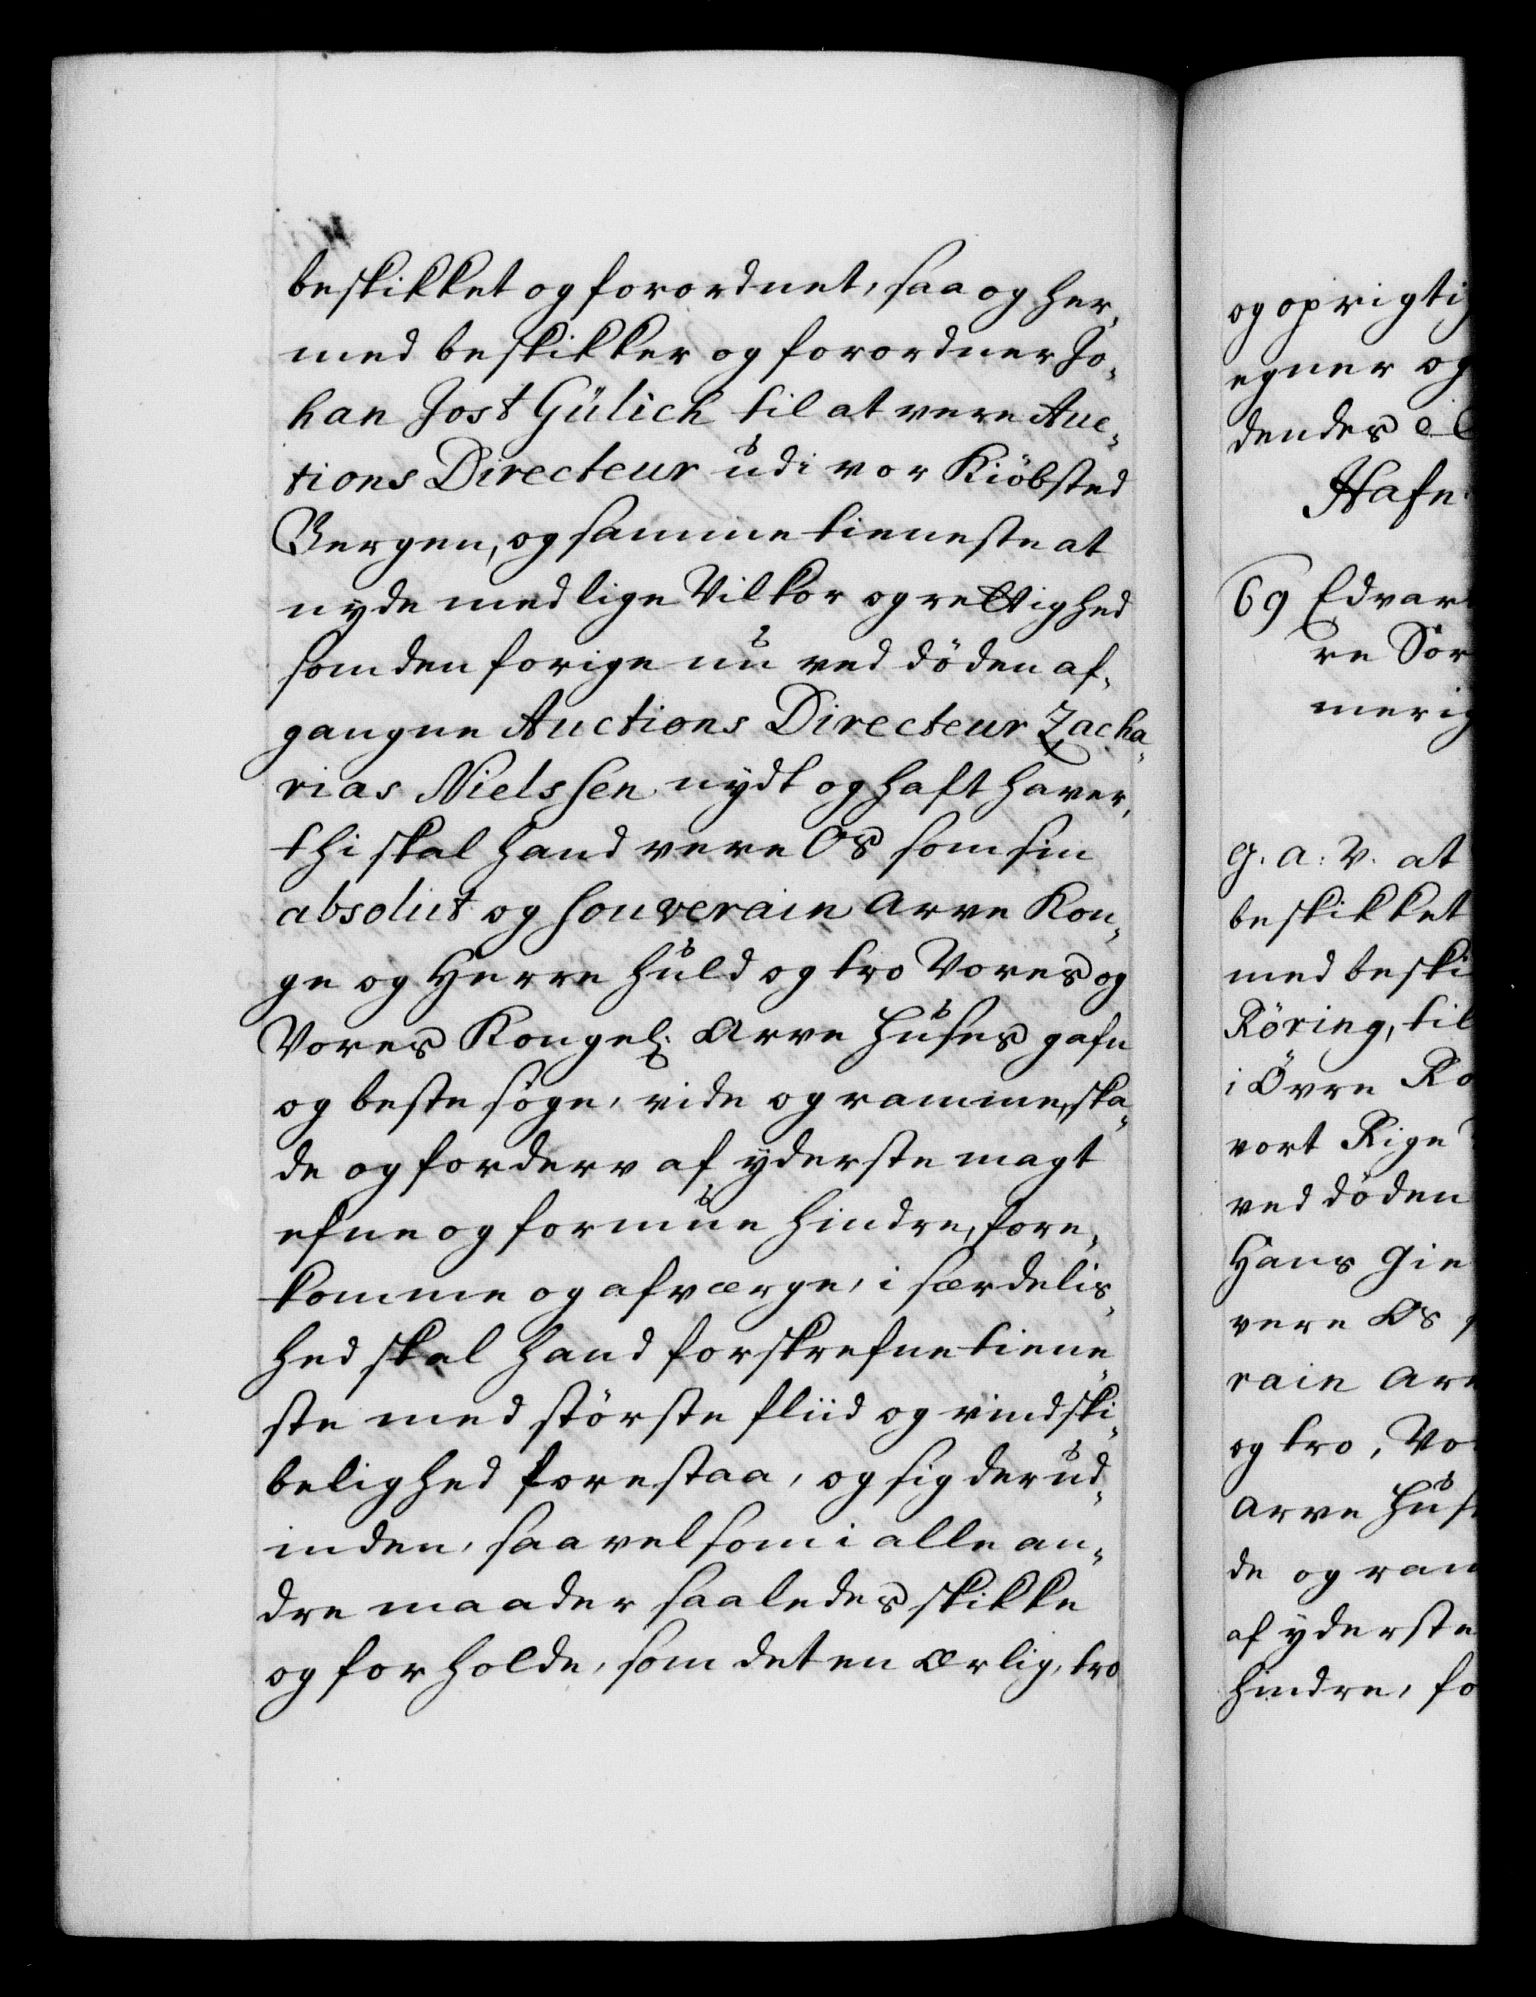 beskikket og forordnet, saa og her,
med beskikker og forordner Jo,
han Jost Gülich til at vere Auc,
tions Directeur udi vor Kiöbsted
Bergen, og samme tieneste at
nyde med lige Vilkor og rettighed
som den forige nu ved döden af,
gangne Auctions Directeur Zacha,
rias Nielssen nydt og haft haver,
thi skal hand vere Os som sin
absolut og souverain Arve Kon,
ge og Herre huld og tro Vores og
Vores Kongel: Arve Huses gafn
og beste söge, vide og ramme, ska,
de og forderv af yderste magt
efne og formue hindre, fore,
komme og afværge, i særdelis,
hed skal hand forskrefne tiene,
ste med störste fliid og vindski,
belighed forestaa, og sig derud,
inden, saavelsom i alle an,
dre maader saaledes skikke
og forholde, som det en ærlig, tro
og oprigtig
egner og
dendes
Hafn:
69 Edvart
re Sor
merig
G. A: V. at
beskikket
med beski
Röring, til
i Övre Ro
vort Rige
ved döden
Hans Gie
vere Os
rain Arv
og tro, Vo
Arve Hus
de og ram
af yderste
hindre, fo